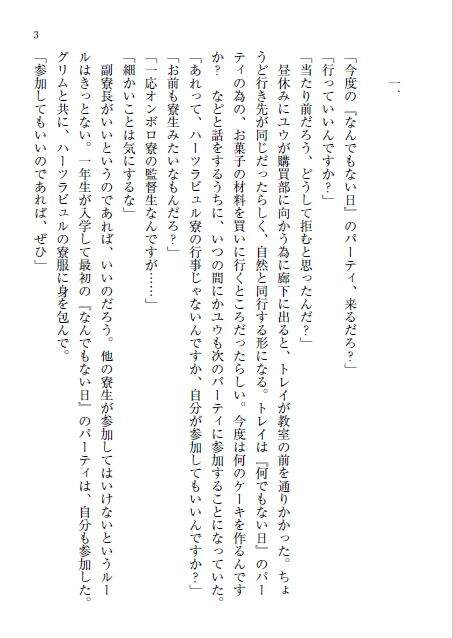 3
一.
「今度の『なんでもない日』のパーティ、来るだろ?」
「行っていいんですか?」
「当たり前だろう、どうして拒むと思ったんだ?」
昼休みにユウが購買部に向かう為に廊下に出ると、トレイが教室の前を通りかかった。ちょ
うど行き先が同じだったらしく、自然と同行する形になる。トレイは『何でもない日』のパー
ティの為の、お菓子の材料を買いに行くところだったらしい。今度は何のケーキを作るんです
か? などと話をするうちに、いつの間にかユウも次のパーティに参加することになっていた。
「あれって、ハーツラビュル寮の行事じゃないんですか、自分が参加してもいいんですか?」
「お前も寮生みたいなもんだろ?」
「一応オンボロ寮の監督生なんですが……」
「細かいことは気にするな」
副寮長がいいというのであれば、いいのだろう。他の寮生が参加してはいけないというルー
ルはきっとない。一年生が入学して最初の『なんでもない日』のパーティは、自分も参加した。
グリムと共に、ハーツラビュルの寮服に身を包んで。
「参加してもいいのであれば、ぜひ」